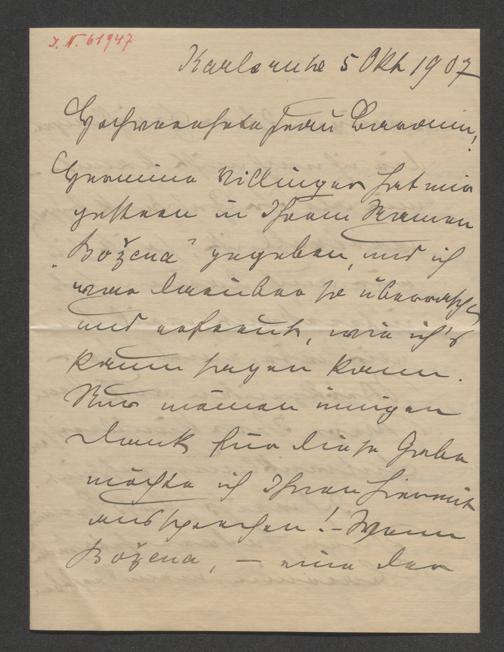 J. N. 61947
Karlsruhe 5 Okt 1907
Hochverehrte Frau Baronin,
Hermine Villinger hat mir
gestern in Ihrem Namen
„Božena“ gegeben, und ich
war darüber so überrascht
und erfreut, wie ich's
kaum sagen kann.
Nur meinen innigen
Dank für diese Gabe
möchte ich Ihnen hiermit
aussprechen! – Wenn
Božena, – eine der